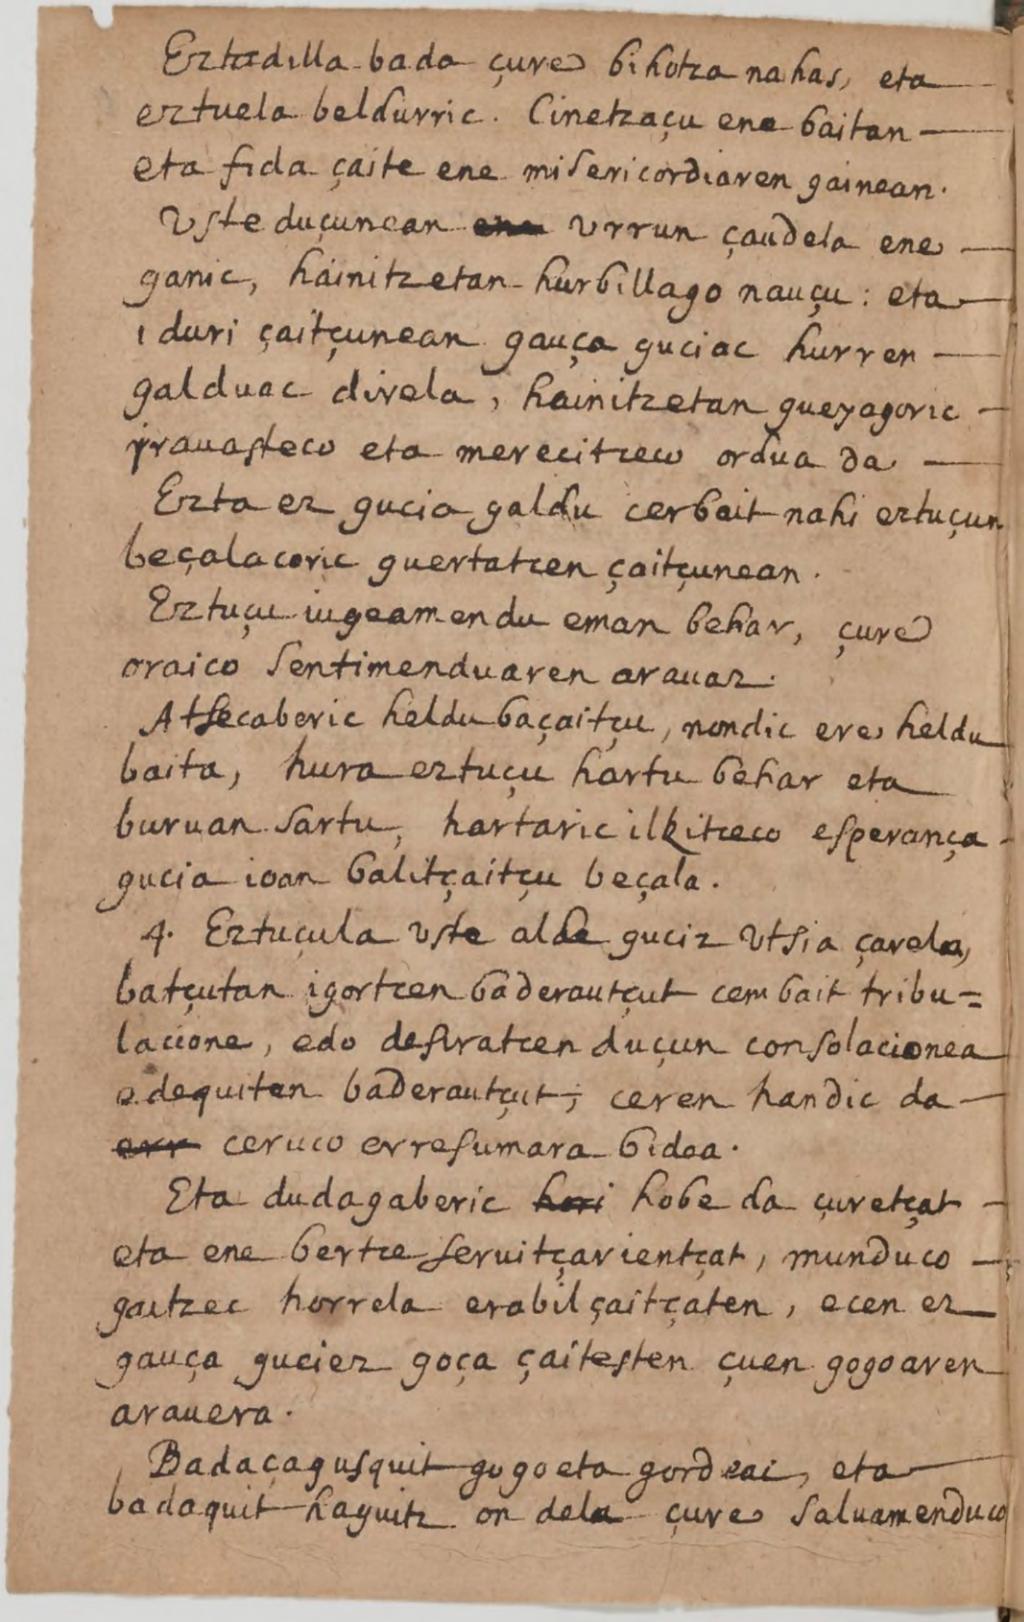 Eztadilla bada çure bihotza nahas, eta
eztuela beldurric. Cinetzaçu ene baitan
eta fida çaite ene misericordiaren gainean.
Vste duçunean ene vrrun çaudela ene
ganic, hainitzetan hurbillago nauçu: eta
iduri çaitçunean gauça guciac hurren
galduac direla, hainitzetan gueyagoric
irauasteco eta merecitceco ordua da
Ezta ez gucia galdu cerbait nahi eztuçun
beçalacoric guertatcen çaitçunean.
Eztuçu iugeamendu eman behar, çure
oraico sentimenduaren arauaz.
Atsecaberic heldu baçaitçu, nondic ere heldu
baita, hura eztuçu hartu behar eta
buruan sartu, hartaric ilkitceco esperança
gucia ioan balitçaitçu beçala.
4. Eztuçula vste alde guciz vtsia çarela,
batçutan igortcen baderautçut cembait tribu=
lacione, edo desiratcen duçun consolacionea
edequiten baderautçut; ceren handic da
err ceruco erresumara bidea.
Eta dudagaberic hori hobe da çuretçat
eta ene bertce seruitçarientçat, munduco
gaitzec horrela erabil çaitçaten, ecen ez
gauça guciez goça çaitesten çuen gogoaren
arauera.
Badaçagusquit gogoeta gordeac, eta
badaquit haguitz on dela çure saluamenduco